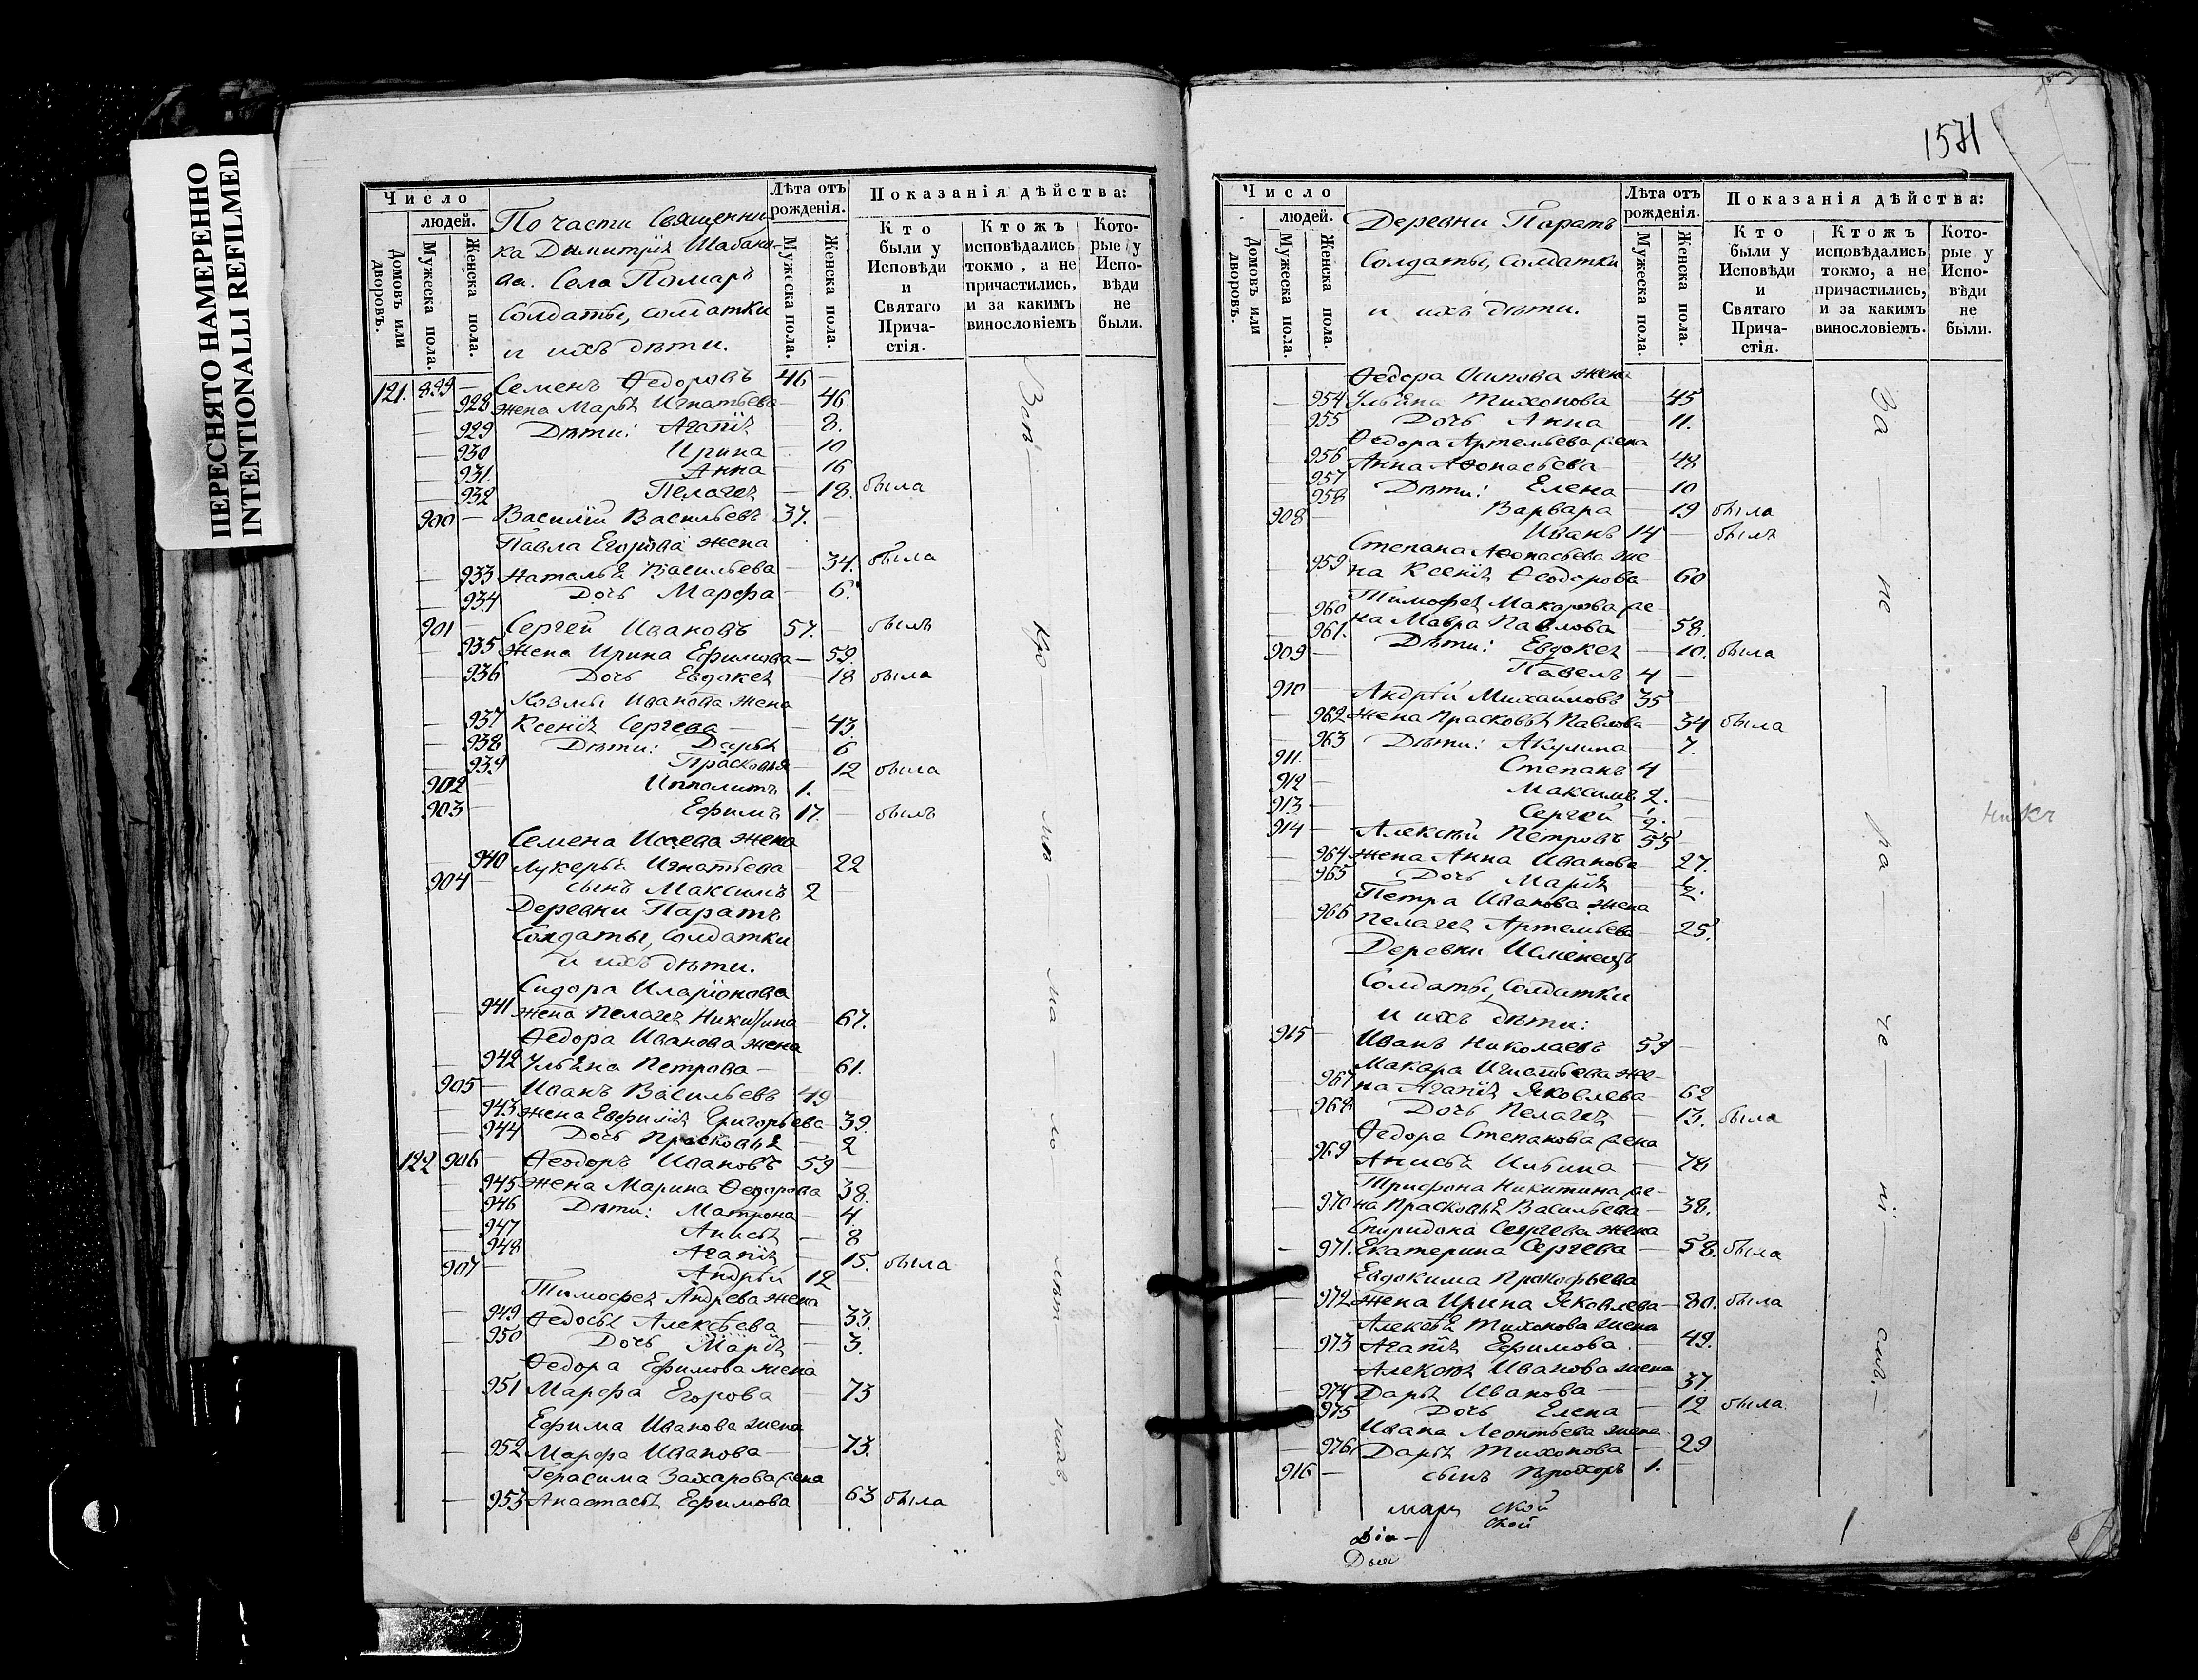 ПЕРЕСНЯТО НАМЕРЕННО
INTENTIONALLI REFILMED
Число
людей.
Домовъ или дворовъ.
Мужеска пола.
Женска пола.
По части Священни-
ка Димитрія Шабано-
ва. Села Помаръ
Солдаты, солдатки
и ихъ дѣти.
Лѣта отъ рожденія.
Мужеска пола.
Женска пола.
Показанія дѣйства:
Кто были у Исповѣди и Святаго Прича-стія.
Ктожъ исповѣдались токмо, а не причастились, и за какимъ винословіемъ
Кото-рые у Испо-вѣди не были.
121. 899 — Семенъ Ѳедоровъ 46 —
— 928 жена Марья Игнатьева — 46
— 929 Дѣти: Агапія — 8.
— 930 Ирина — 10
— 931. Анна — 16
— 932 Пелагея — 18. была
900 — Василій Васильевъ 37. —
Павла Егорова жена
— 933 Наталья Васильева — 34. была
— 934 Дочь Марфа — 6.
901 — Сергей Ивановъ 57. — былъ
— 935 жена Ирина Ефимова — 59.
— 936 Дочь Евдокея — 18 была
Козмы Иванова жена
— 937 Ксенія Сергева — 43.
— 938 Дѣти: Дарья — 6
— 939 Прасковья — 12 была
902 — Ипполитъ 1. —
903 — Ефимъ 17. — былъ
Семена Исаева жена
— 940 Лукерья Игнатьева — 22
904 — сынъ Максимъ 2 —
Деревни Паратъ
Солдаты, Солдатки
и ихъ дѣти.
Сидора Иларіонова
— 941 жена Пелагея Никитина — 67.
Ѳедора Иванова жена
— 942 Ульяна Петрова — 61.
905 — Иванъ Васильевъ 49 —
— 943 жена Евфимія Григорьева — 39.
— 944 Дочь Прасковья — 2
122 906 — Ѳеодоръ Ивановъ 59 —
— 945 жена Марина Ѳедорова 38.
— 946 Дѣти: Матрона — 4.
— 947 Анисья — 8
— 948 Агапія — 15. была
907 — Андрей 12
Тимофея Андрева жена
— 949. Ѳедосья Алексѣева — 33.
— 950 Дочь Марія — 3.
Ѳедора Ефимова жена
— 951 Марфа Егорова — 73
Ефима Иванова жена
— 952 Марфа Иванова — 73.
Герасима Захарова жена
— 953 Анастасья Ефимова 63 была
1571
Число
людей.
Домовъ или дворовъ.
Мужеска пола.
Женска пола.
Деревни Паратъ
Солдаты, солдатки
и ихъ дѣти.
Лѣта отъ рожденія.
Мужеска пола.
Женска пола.
Показанія дѣйства:
Кто были у Исповѣди и Святаго Прича-стія.
Ктожъ исповѣдались токмо, а не причастились, и за какимъ винословіемъ.
Кото-рые у Испо-вѣди не были.
Ѳедора Осипова жена
— 954 Ульяна Тихонова — 45
— 955 Дочь Анна — 11.
Ѳедора Артемьева жена
— 956 Анна Аѳонасьева — 48
— 957 Дѣти: Елена — 10
— 958 Варвара — 19 была
908 — Иванъ 14 — былъ
Степана Аѳонасьева же-
— 959 на Ксенія Ѳеодорова — 60
Тимофея Макарова же-
— 960 на Мавра Павлова — 58.
— 961. Дѣти: Евдокея — 10. была
909 — Павелъ 4 —
910 — Андрей Михайловъ 35 —
— 962 жена Прасковья Павлова — 34 была
— 963 Дѣти: Акулина — 7.
911. — Степанъ 4 —
912 — Максимъ 2. —
913 — Сергей 1/2. —
914 — Алексѣй Петровъ 55 —
— 964 жена Анна Иванова — 27.
— 965 Дочь Марія — 1/2.
Петра Иванова жена
— 966 Пелагея Артемьева — 25.
Деревни Исменецъ
Солдаты, Солдатки
и ихъ дѣти:
915 — Иванъ Николаевъ 59 —
Макара Игнатьева же-
— 967 на Агапія Яковлева — 62
— 968 Дочь Пелагея — 13. была
Ѳедора Степанова жена
— 969 Анисья Ильина — 78
Трифона Никитина же-
— 970 на Прасковья Васильева — 38.
Спиридона Сергева жена
— 971. Екатерина Сергева — 58. была
Евдокима Прокофьева
— 972 жена Ирина Яковлева — 80. была
Алексѣя Тихонова жена
— 973 Агапія Ефимова — 49.
Алексѣя Иванова жена
— 974 Дарья Иванова — 37.
— 975 Дочь Елена — 12 была
Ивана Леонтьева жена
— 976 Дарья Тихонова — 29
916 — сынъ Прохоръ 1. —